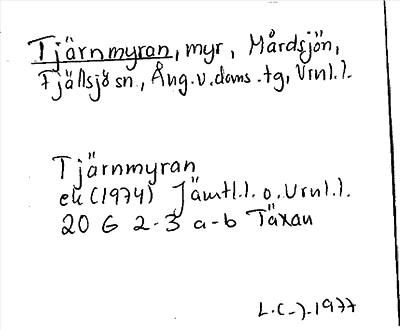 Tjärnmyran, myr, Mårdsjön,
Fjällsjö sn., Ång. v. doms. tg, Vrnl. l.
Tjärnmyran
ek (1974) Jämtl. l. o. Vrnl. l.
20 G 2-3 a-b Täxan
L. (-). 1977